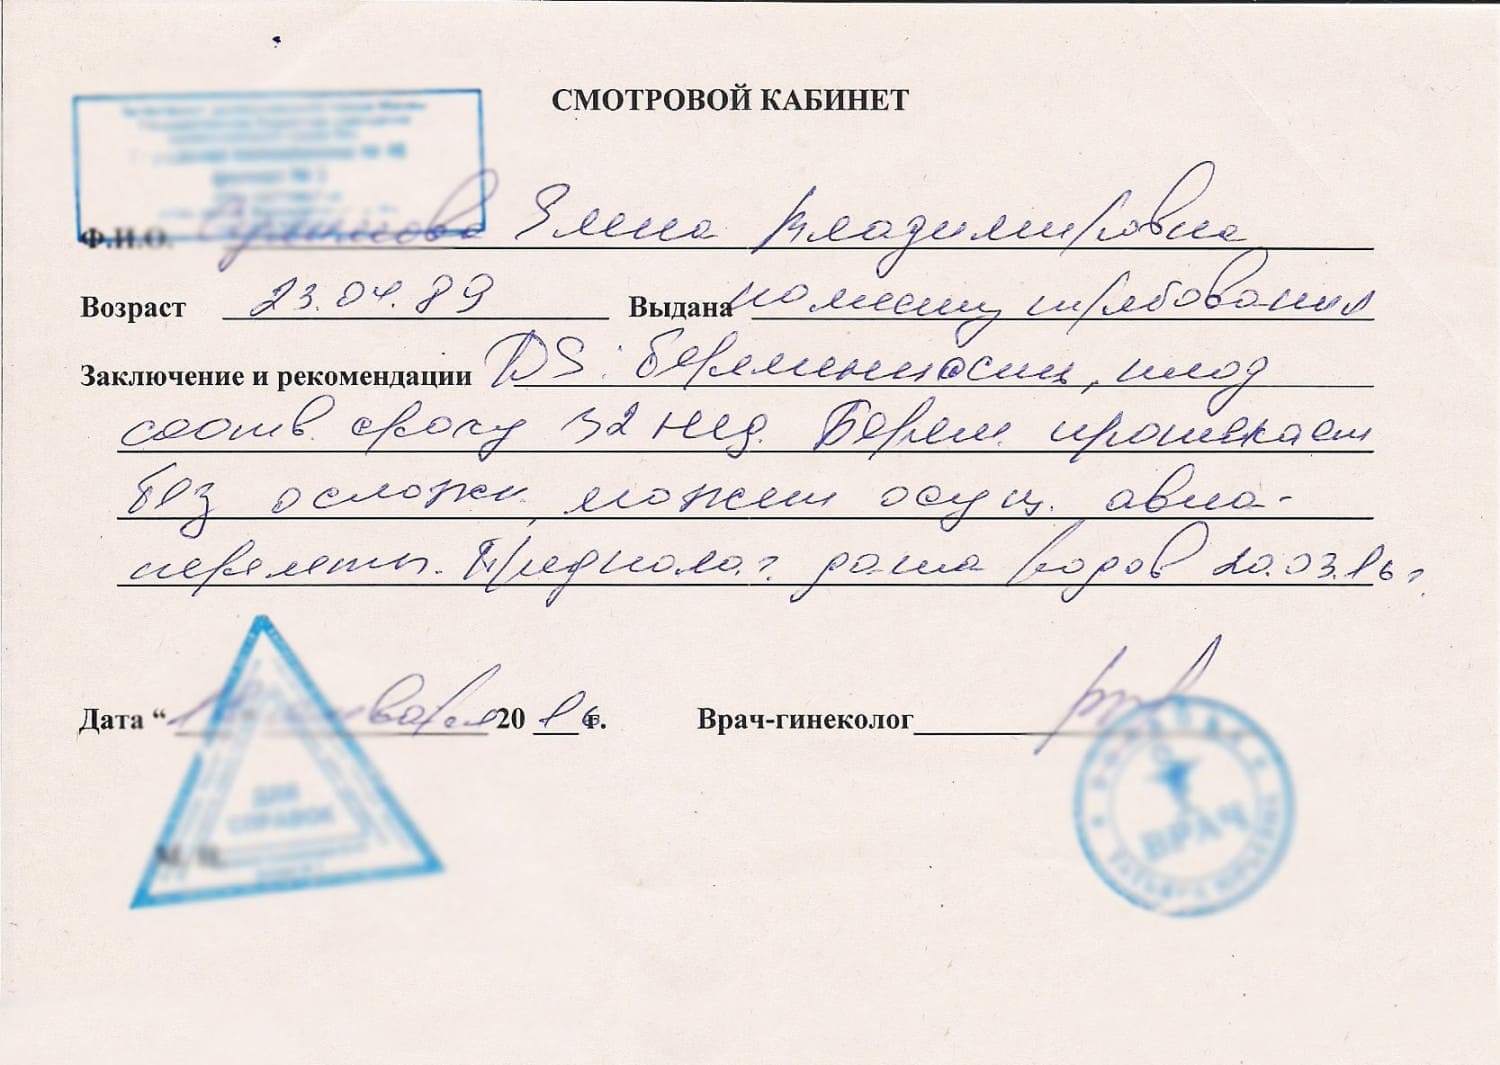 СМОТРОВОЙ КАБИНЕТ
Ф.И.О. Елена Владимировна
Возраст 23.04.89 Выдана по месту требования
Заключение и рекомендации DS: беременность, плод
соотв. сроку 32 нед. Берем. протекает
без осложн. может осущ. авиа-
перелеты. Предполаг. дата родов 20.03.16 г
Дата “ января 2016 г. Врач-гинеколог
ДЛЯ
СПРАВОК
М.П.
ВРАЧ
ТАТЬЯНА ЮРЬЕВНА